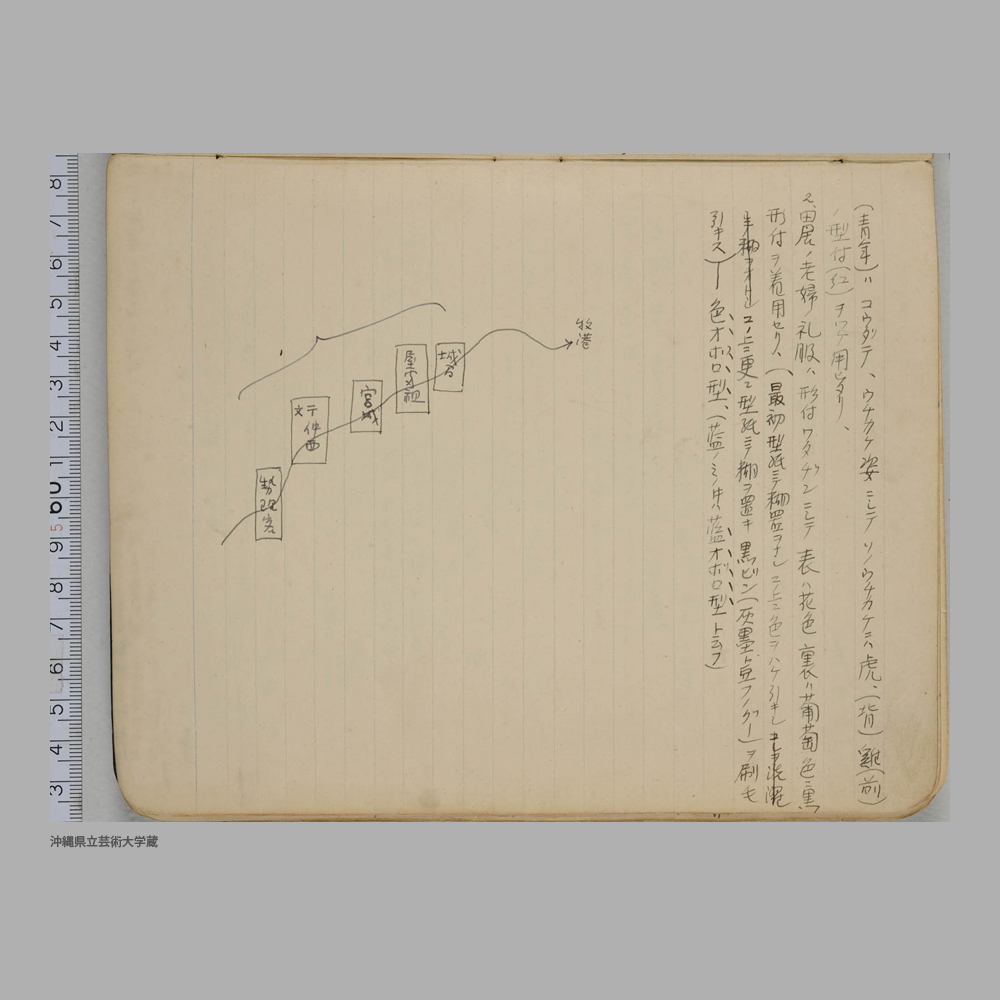 (青年)ハコウダテ、ウチカケ姿ニシテソノウチカケニハ虎、(背)雞(前)
ノ型付(紅)ヲ用ヒタリ、
又田展ノ老婦ノ礼服ハ形付ワタヂンニシテ表ハ花色裏ハ葡萄色ニ黒
形付ヲ着用セリ、(最初型紙ニテ糊置ヲナシ上ニ色ヲハケ引キシ
上ニ更ニ型紙ニテ糊ヲ置キ黒ビン(灰墨ト豆フノグー)ヲ刷毛
引キス)ー色オボロ型、(藍ノミノ中ハ藍オボロ型ト云フ)
牧港
城間
屋富祖
宮城
仲西
勢理客
沖縄県立芸術大学蔵